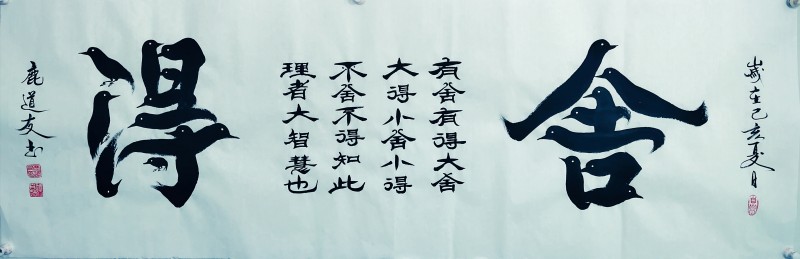 岁在己亥夏月
舍得
有舍有得大舍
大得小舍小得
不舍不得知此
理者大智慧也
鹿道友书